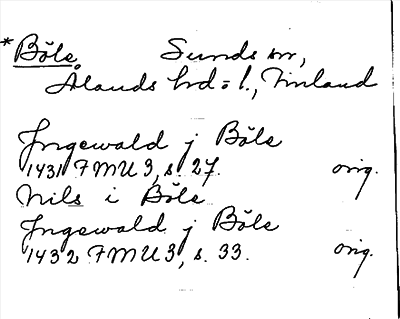 *Böle, Sunds sn,
Ålands hd o l., Finland
Jngewald j Böle
1431 FMU 3, s. 27. orig.
Nils i Böle
Jngewald j Böle
1432 FMU 3, s. 33. orig.